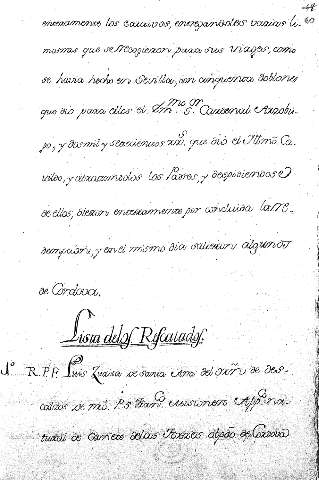 enteramente los cautivos, entregandoles varias li-
mosnas que se recogieron para sus viages, como
se havia hecho en Sevilla, con cinquenta doblones
que dió para ellos el Em.mo S.r Cardenal Arzobis-
po, y dos mil y seiscientos que dió el Il.mo Ca-
vildo, y abrazandolos los Padres, y despidiendose
de ellos, dieron enteramente por concluida la Re-
dempcion, y en el mismo dia salieron algunos
de Cordova.
Lista delos Rescatados.
1.º R. P. Fr. Luis de Santa Ana del orñ de des-
calzos de ntro. P. S. Fran.co Misionero App.co na-
tural de de las Torres obpão de Cordova